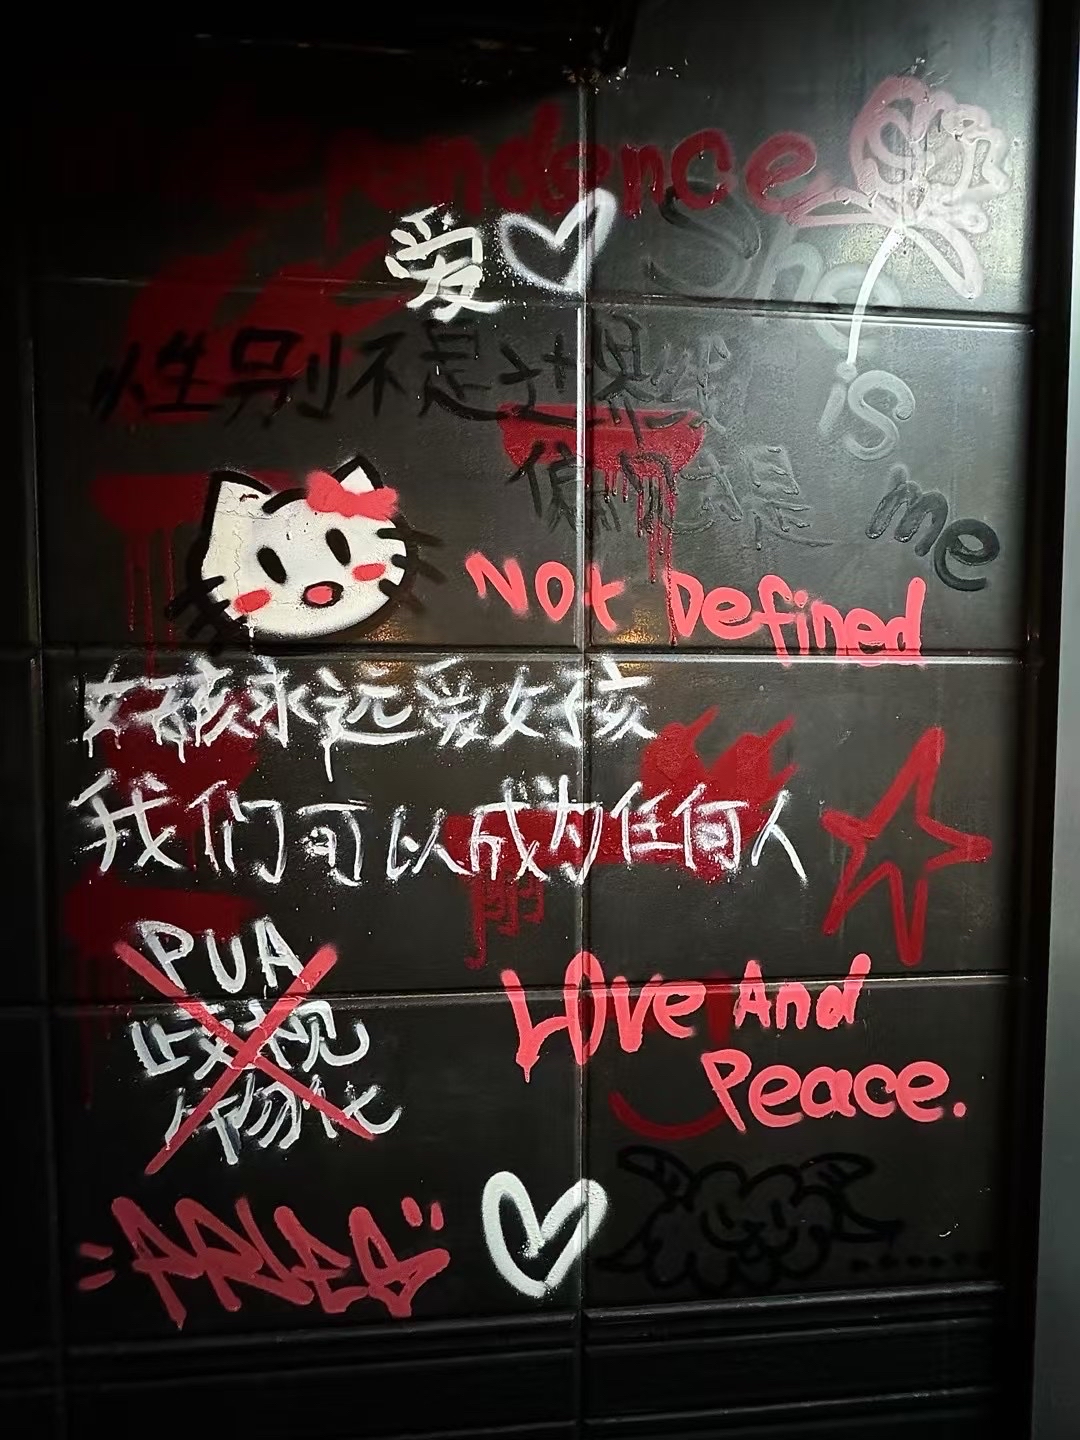 Independence
爱
She
is
me
性别不是边界线
偏见是
Not Defined
女孩永远爱女孩
我们可以成为任何人
PUA
歧视
物化
Love And
Peace.